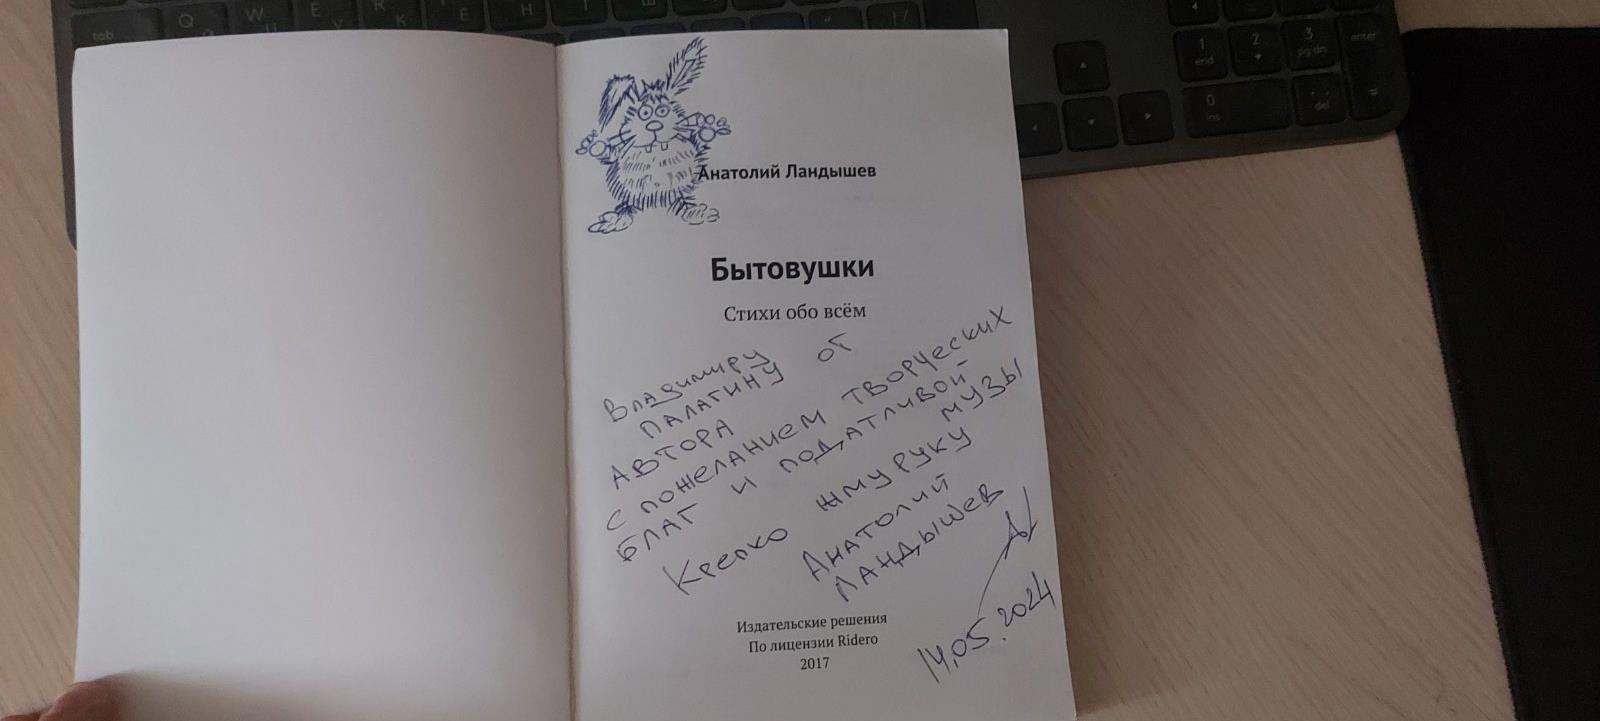 tab
Q
W
E
R
К
E
Н
Ш
1
end
2
3
pg dn
enter
0
ins
del
Анатолий Ландышев
Бытовушки
Стихи обо всём
Владимиру
Палагину от
автора
с пожеланием творческих
благ и податливой
музы
Крепко жму руку
Анатолий
Ландышев
14.05.2024
Издательские решения
По лицензии Ridero
2017